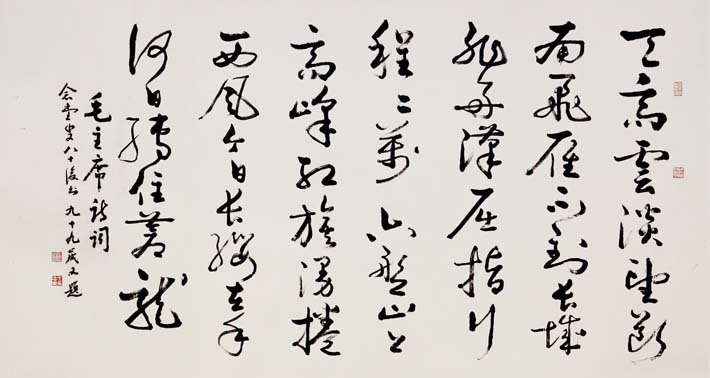 天高雲淡望斷
南飛雁不到長城
非好漢屈指行
程二萬六盤山上
高峰紅旗漫捲
西風今日長纓在手
何日縛住蒼龍
毛主席詩詞
叟八十後書九十九歲又題